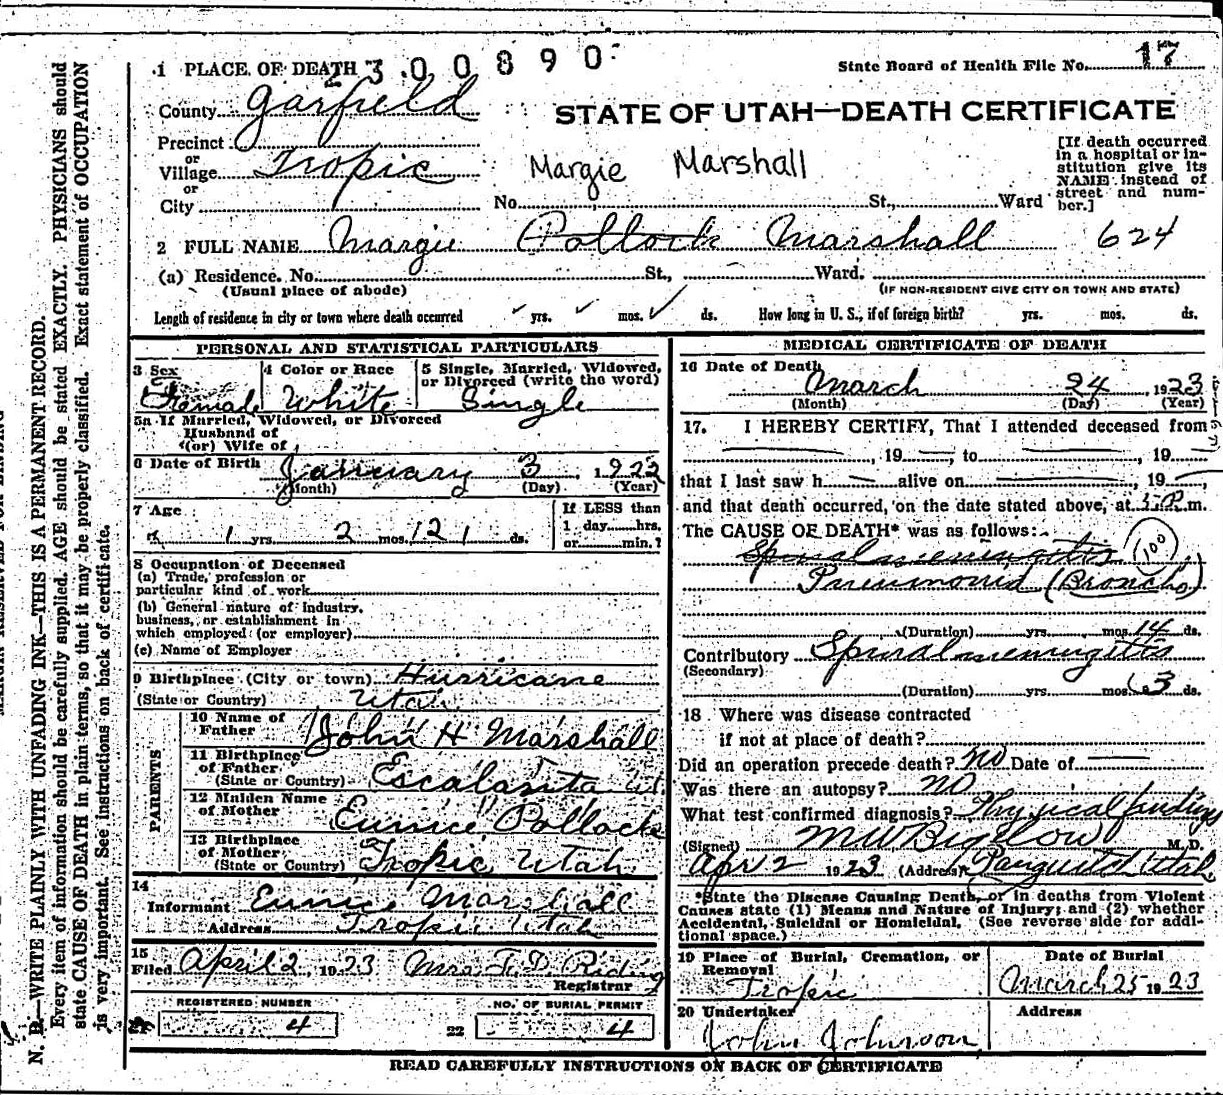 1 PLACE OF DEATH 2300890
State Board of Health File No. 17
County Garfield
STATE OF UTAH—DEATH CERTIFICATE
Precinct
or
Village Tropic
Margie Marshall
[If death occurred in a hospital or institution give its NAME instead of street and number.]
or
City No. St., Ward
2 FULL NAME Margie Pollock Marshall 624
(a) Residence. No. St., Ward.
(Usual place of abode) (IF NON-RESIDENT GIVE CITY OR TOWN AND STATE)
Length of residence in city or town where death occurred yrs. mos. ds. How long in U. S., if of foreign birth? yrs. mos. ds.
PERSONAL AND STATISTICAL PARTICULARS
3 Sex 4 Color or Race 5 Single, Married, Widowed, or Divorced (write the word)
Female White Single
5a If Married, Widowed, or Divorced
Husband of
(or) Wife of
6 Date of Birth January 3, 1922
(Month) (Day) (Year)
7 Age If LESS than
1 yrs. 2 mos. 21 ds. 1 day hrs.
or min.?
8 Occupation of Deceased
(a) Trade, profession or
particular kind of work
(b) General nature of industry,
business, or establishment in
which employed (or employer)
(c) Name of Employer
9 Birthplace (City or town) Hurricane
(State or Country) Utah
PARENTS
10 Name of Father John H Marshall
11 Birthplace of Father
(State or Country) Escalanta Ut.
12 Maiden Name of Mother Eunice Pollock
13 Birthplace of Mother
(State or Country) Tropic Utah
14
Informant Eunice Marshall
Address Tropic Utah
15
Filed April 2 1923 Mrs. J. D. Riding
Registrar
REGISTERED NUMBER NO. OF BURIAL PERMIT
21 4 22 4
MEDICAL CERTIFICATE OF DEATH
16 Date of Death March 24, 1923
(Month) (Day) (Year)
17. I HEREBY CERTIFY, That I attended deceased from
, 19 , to , 19
that I last saw h alive on , 19 ,
and that death occurred, on the date stated above, at 5 P. m.
The CAUSE OF DEATH* was as follows:
Spinal menengitis (100)
Pneumonia (Broncho)
(Duration) yrs. mos. 14 ds.
Contributory Spinal menengitis
(Secondary)
(Duration) yrs. mos. 3 ds.
18 Where was disease contracted
if not at place of death?
Did an operation precede death? no Date of
Was there an autopsy? no
What test confirmed diagnosis? Physical findings
(Signed) M W Bigelow M. D.
Apr 2 1923 (Address) Panguitch Utah
*State the Disease Causing Death, or in deaths from Violent
Causes state (1) Means and Nature of Injury; and (2) whether
Accidental, Suicidal or Homicidal. (See reverse side for addi-
tional space.)
19 Place of Burial, Cremation, or Removal Date of Burial
Tropic March 25 1923
20 Undertaker Address
John Johnson
READ CAREFULLY INSTRUCTIONS ON BACK OF CERTIFICATE
N. B.—WRITE PLAINLY WITH UNFADING INK—THIS IS A PERMANENT RECORD.
Every item of information should be carefully supplied. AGE should be stated EXACTLY. PHYSICIANS should
state CAUSE OF DEATH in plain terms, so that it may be properly classified. Exact statement of OCCUPATION
is very important. See instructions on back of certificate.